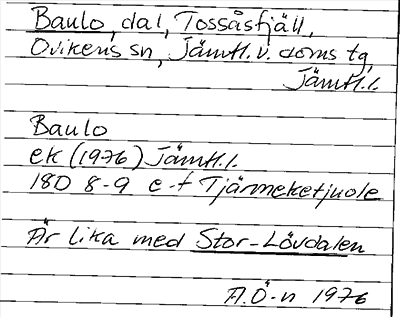 Baulo, dal, Tossåsfjäll,
Ovikens sn, Jämtl. v. doms tg,
Jämtl. l.
Baulo
ek (1976) Jämtl. l.
18D 8-9 e-f Tjärmeketjuole
Är lika med Stor-Lövdalen
A.Ö-n 1976